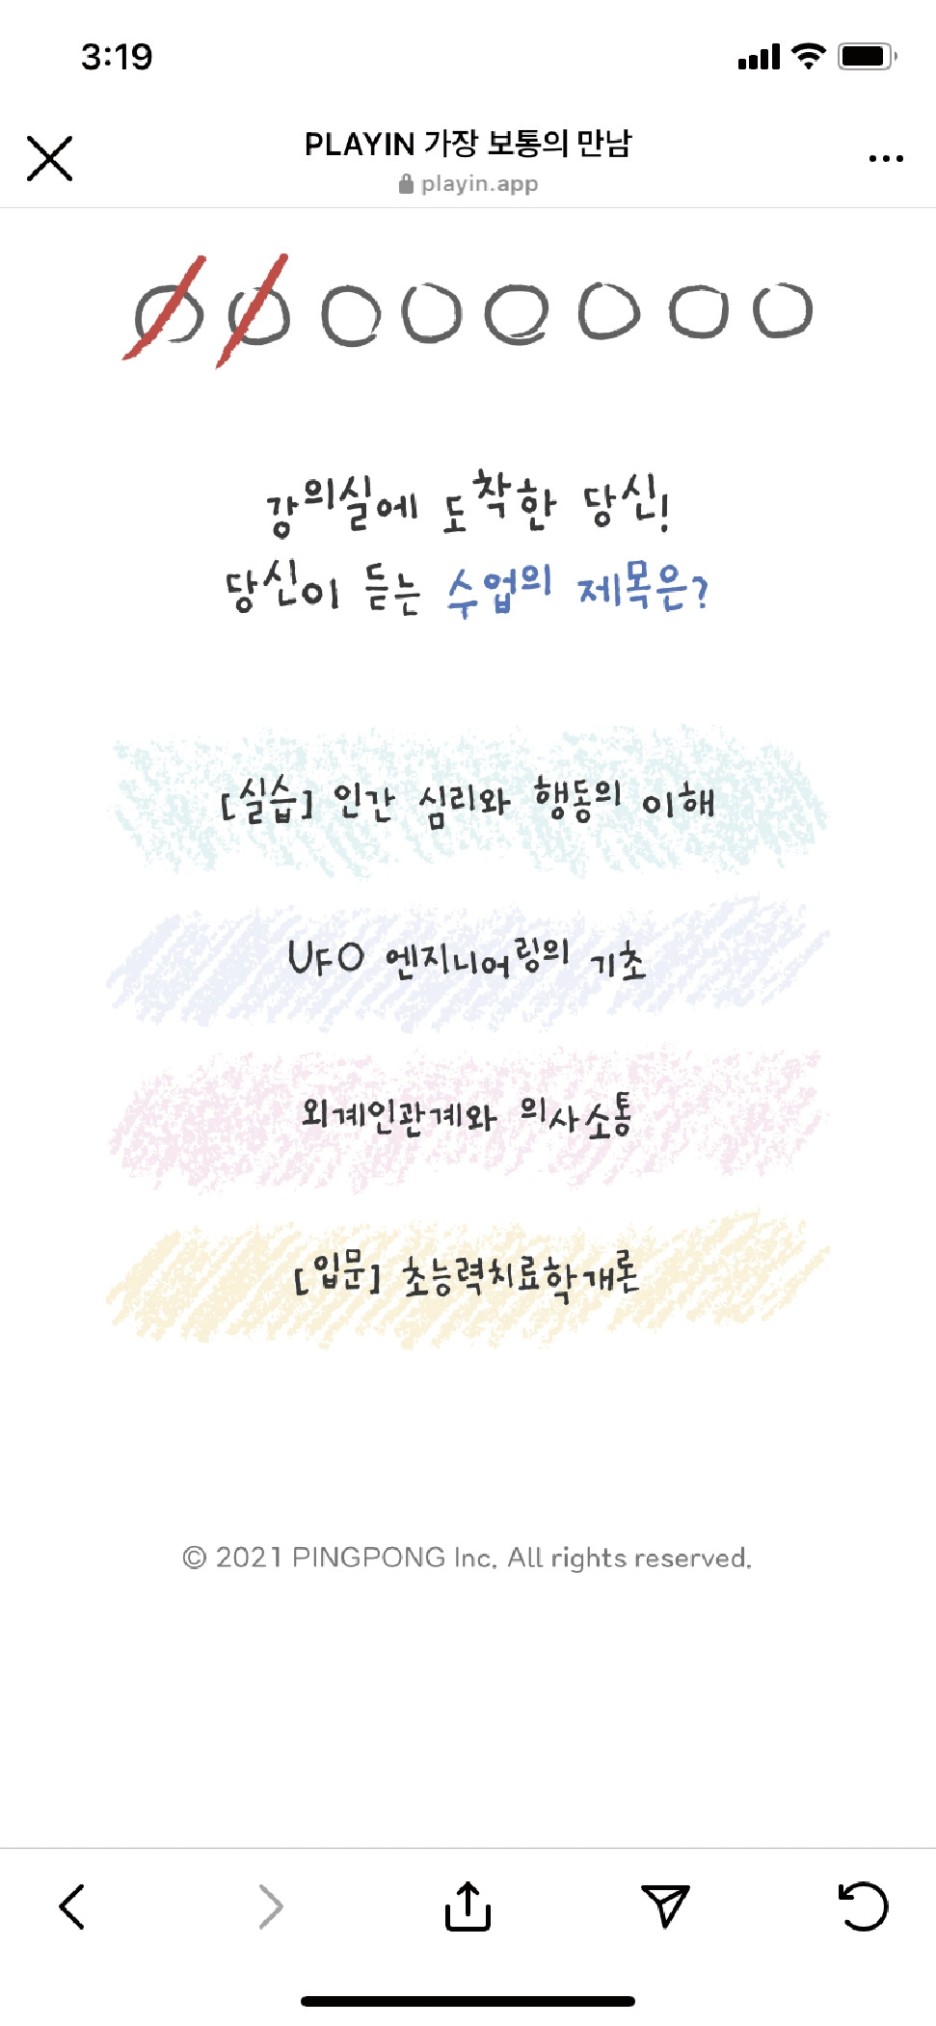 3:19
PLAYIN 가장 보통의 만남
playin.app
강의실에 도착한 당신!
당신이 듣는 수업의 제목은?
[실습] 인간 심리와 행동의 이해
UFO 엔지니어링의 기초
외계인관계와 의사소통
[입문] 초능력치료학개론
© 2021 PINGPONG Inc. All rights reserved.